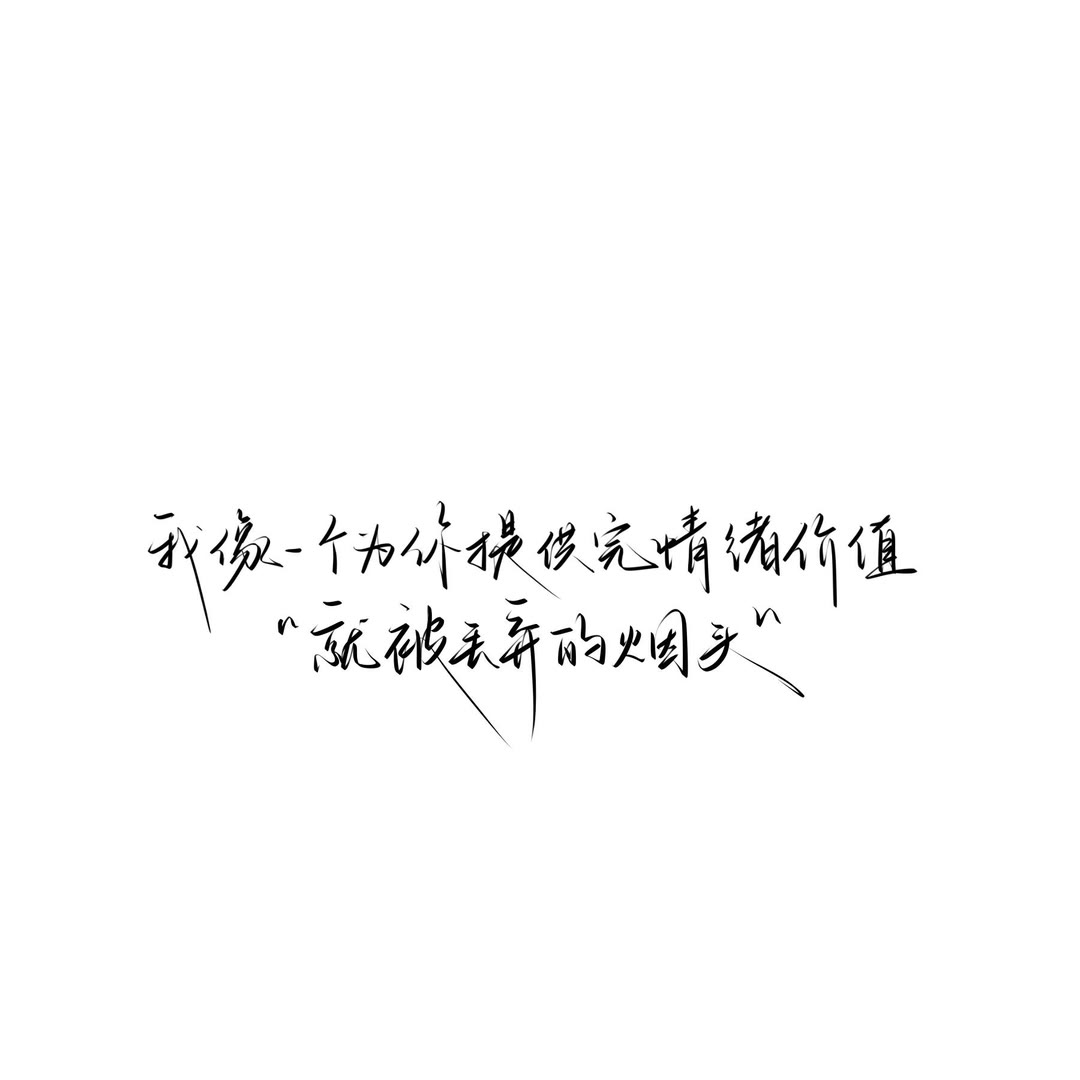 我像一个为你提供完情绪价值
"就被丢弃的烟头"